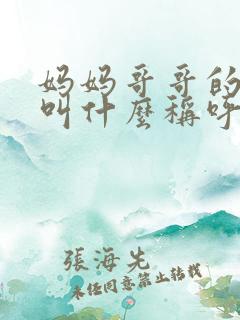 妈妈哥哥的
叫什麼稱呼
張海先
未经同意禁止转载